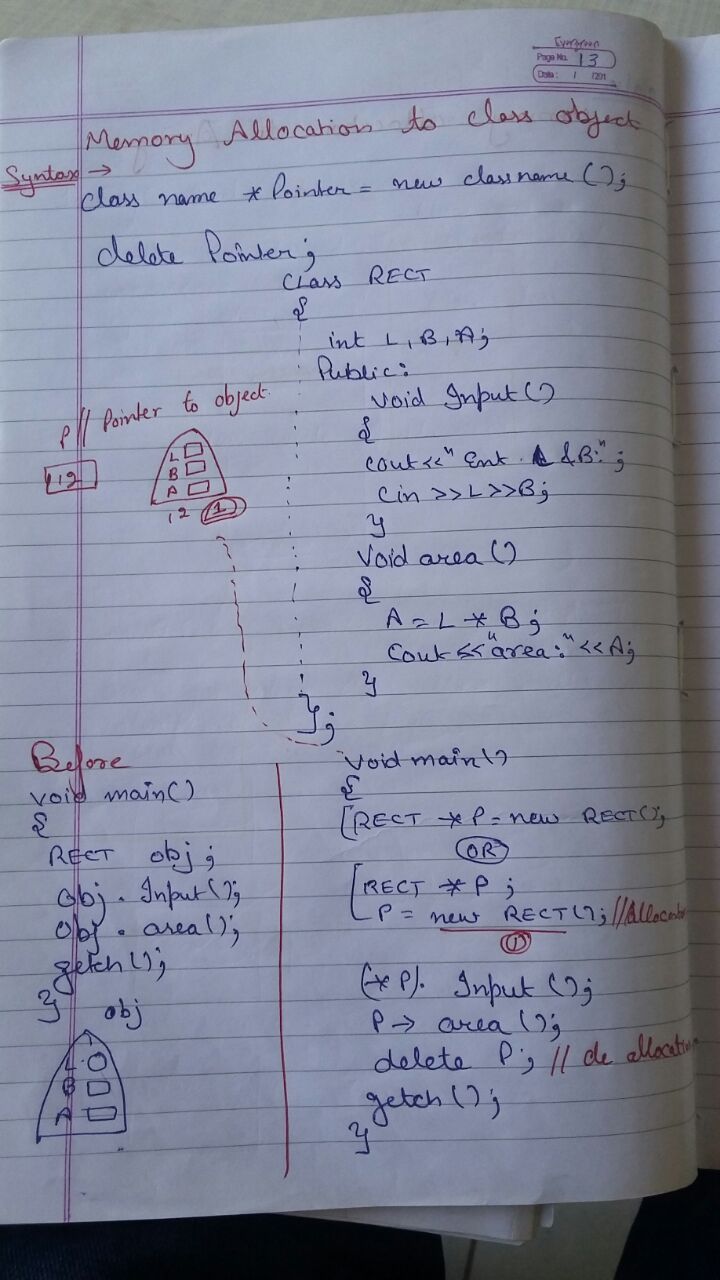 Evergreen
Page No. 13
Date: / /201
Memory Allocation to class object
Syntax →
class name *Pointer = new classname();
delete Pointer;
Class RECT
{
int L, B, A;
Public:
void Input()
{
cout<<"Ent. L &B:";
Cin >>L>>B;
}
Void area()
{
A = L * B;
Cout <<"area:"<<A;
}
};
P // Pointer to object
12
L
B
A
12 ①
Before
void main()
{
RECT obj;
Obj. Input();
Obj. area();
getch();
}
obj
L
B
A
Void main()
{
[RECT *P = new RECT();
OR
[RECT *P;
P = new RECT(); //Allocation
①
(*P). Input();
P → area();
delete P; // de allocation
getch();
}